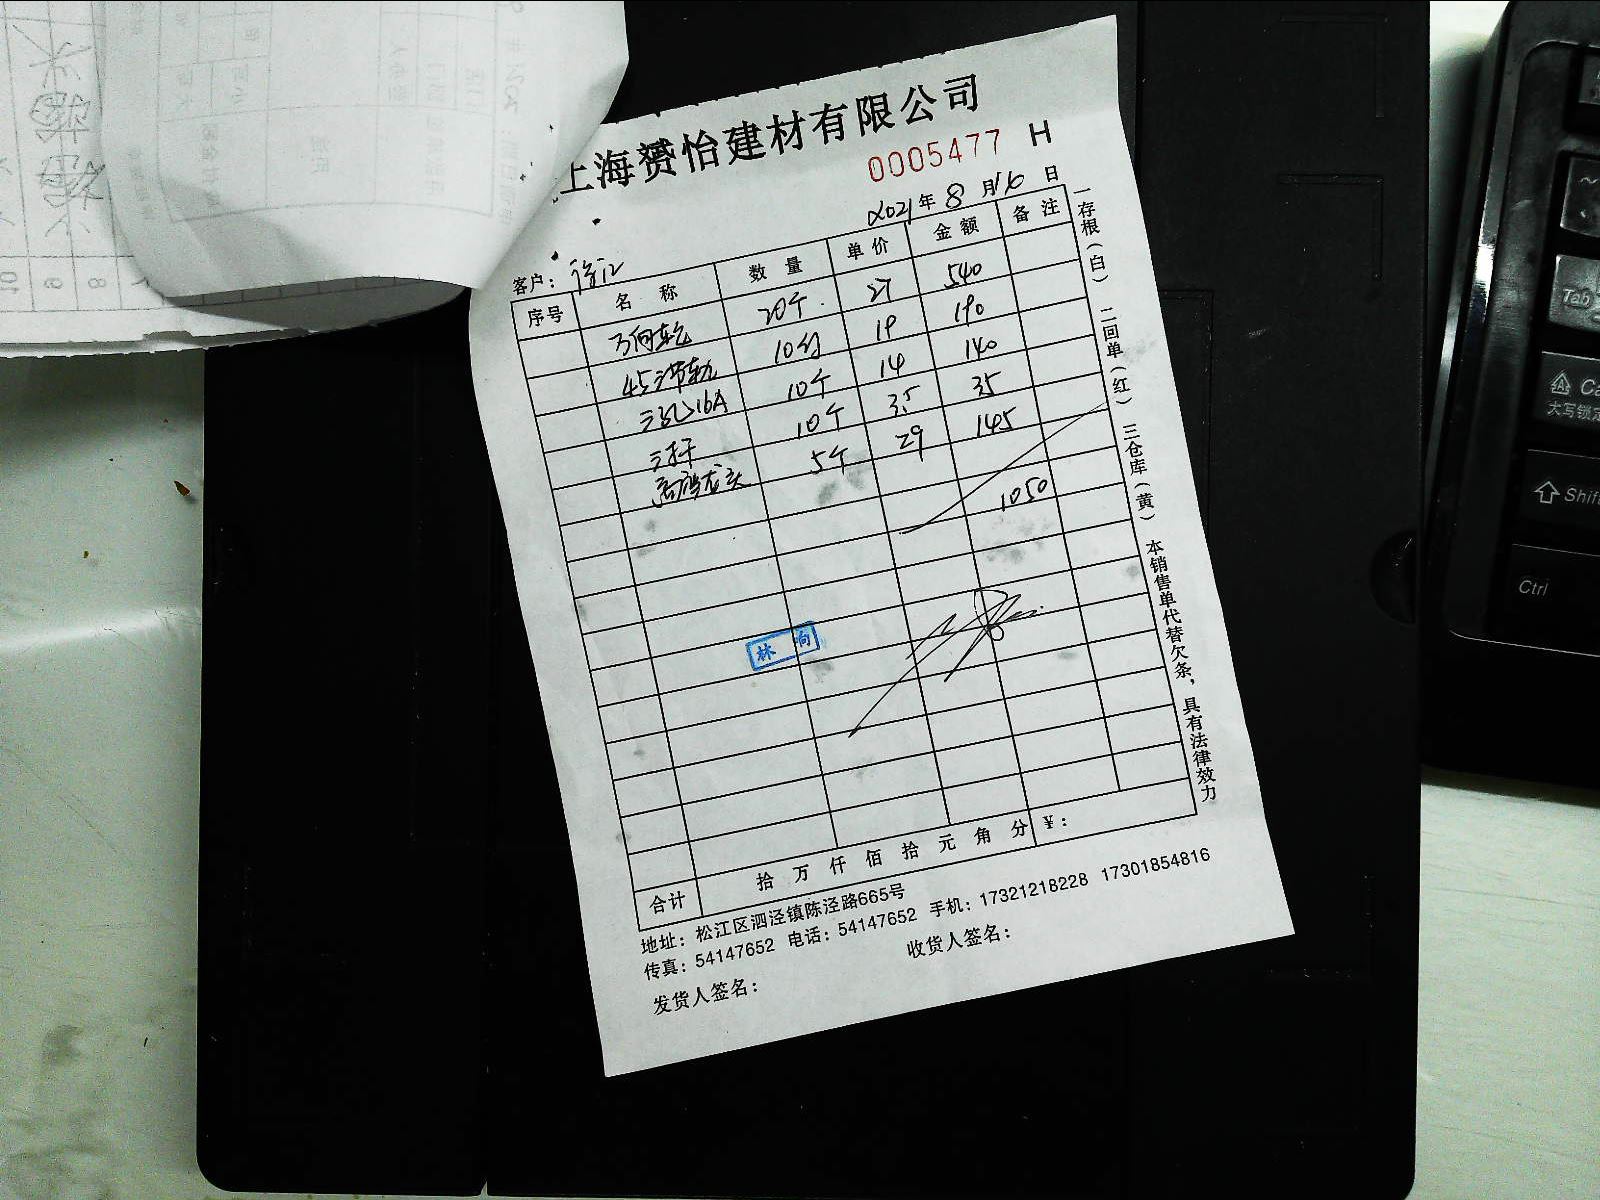 上海赟怡建材有限公司
0005477 H
2021年8月16日
客户：徐江
序号 名称 数量 单价 金额 备注
万向轮 20个 27 540
45三节轨 10付 19 190
三孔16A 10个 14 140
10个 3.5 35
高脚龙头 5个 29 145
1050
林 向
合计 拾 万 仟 佰 拾 元 角 分 ¥：
地址：松江区泗泾镇陈泾路665号
传真：54147652 电话：54147652 手机：17321218228 17301854816
发货人签名： 收货人签名：
一存根（白） 二回单（红） 三仓库（黄） 本销售单代替欠条，具有法律效力
Tab
大写锁定
Shift
Ctrl